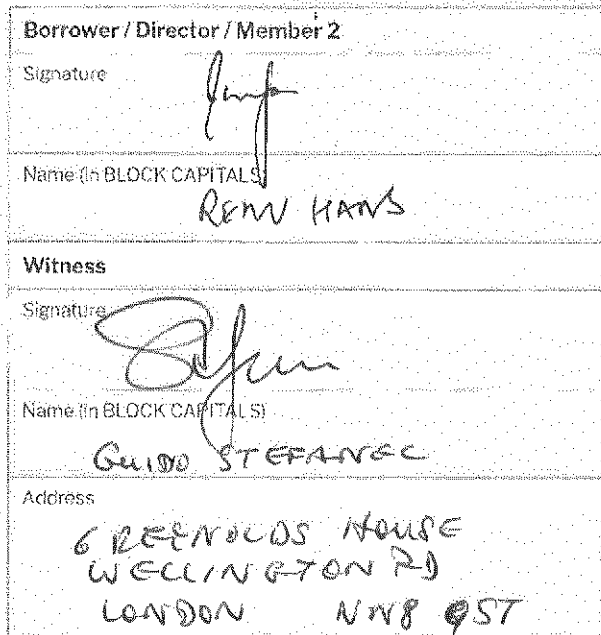 Borrower / Director / Member 2
Signature
Name (In BLOCK CAPITALS)
HANS
Witness
Signature
Name (In BLOCK CAPITALS)
GUIDO STEFANEC
Address
6 REENOLDS HOUSE
WELLINGTON RD
LONDON NW8 9ST